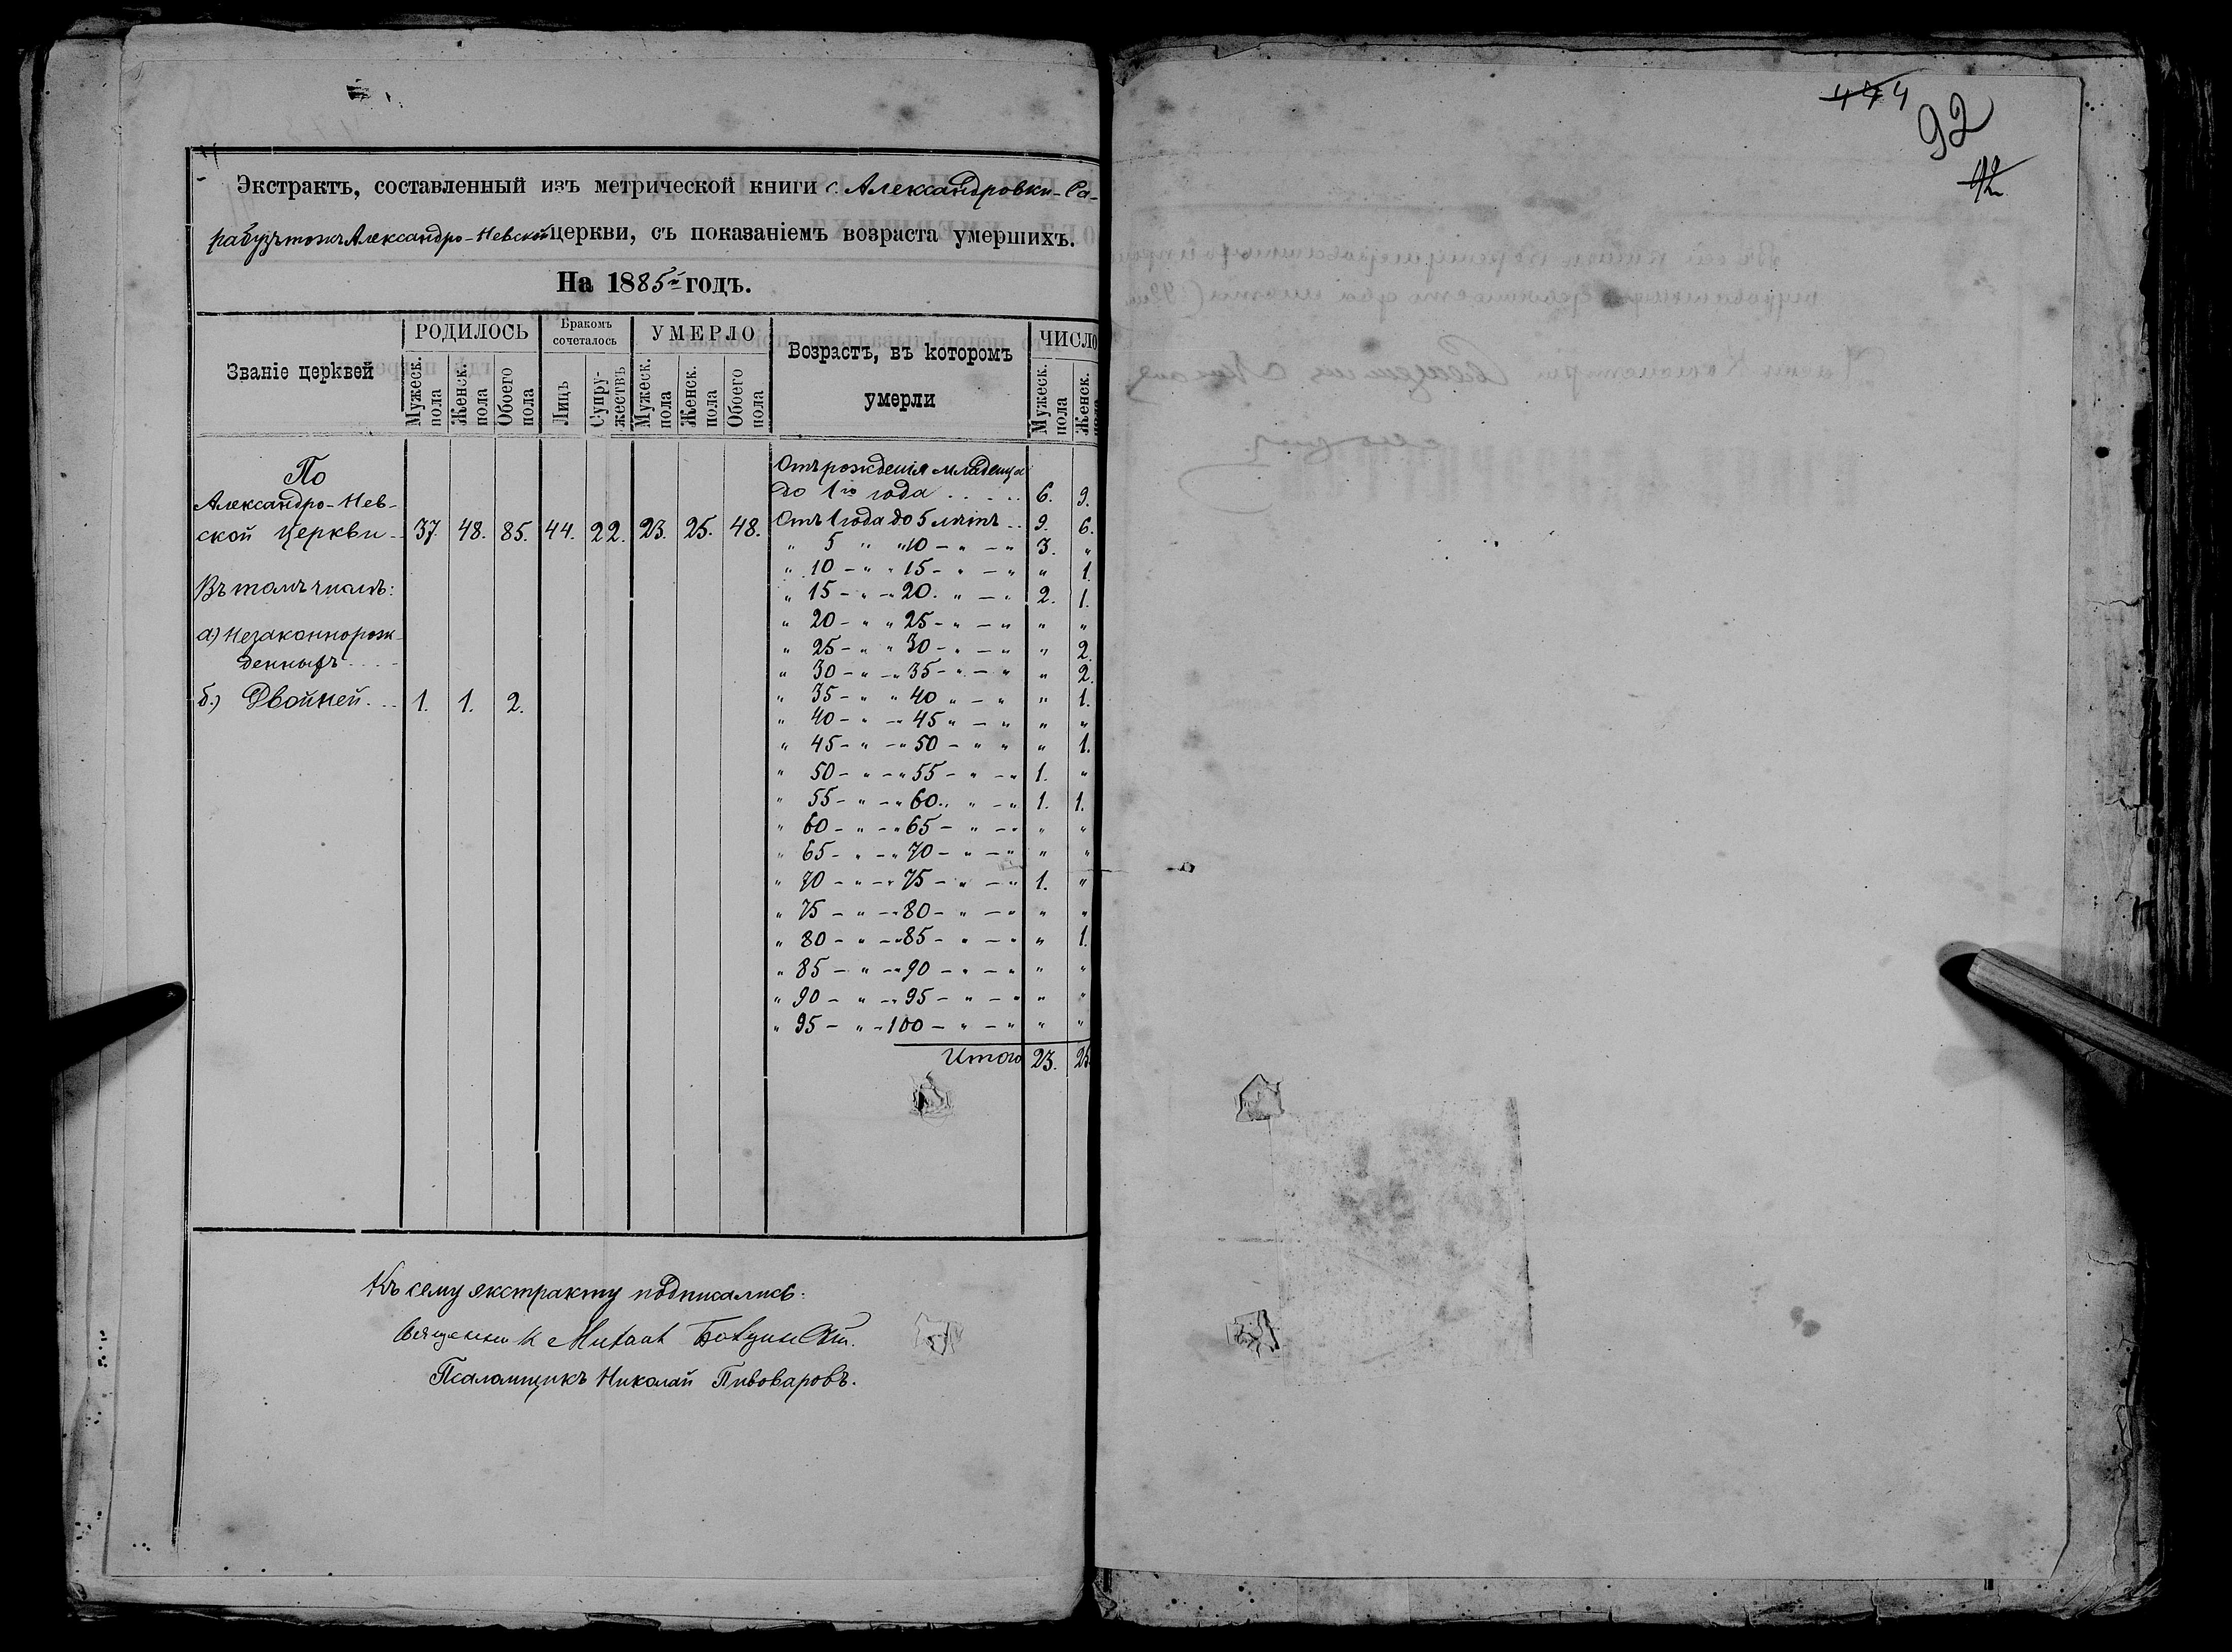 Экстрактъ, составленный изъ метрической книги с. Александровки-Са-
рабузъ тожъ Александро-Невской церкви, съ показаніемъ возраста умершихъ.
На 1885й годъ.
Званіе церквей
РОДИЛОСЬ
Бракомъ сочеталось
УМЕРЛО
Возрастъ, въ которомъ
умерли
ЧИСЛО
Мужеск. пола
Женск. пола
Обоего пола
Лицъ
Супру-жествъ
Мужеск. пола
Женск. пола
Обоего пола
Мужеск. пола
Женск. пола
По
Александро-Нев-
ской церкви - 37. 48. 85. 44. 22. 23. 25. 48.
Въ томъ числѣ:
а) Незаконнорож-
денныхъ . . . -
б.) Двойней . . . 1. 1. 2.
Отъ рожденія младенца
до 1го года . . . . . 6. 9.
Отъ 1 года до 5 лѣтъ . . 9. 6.
" 5 " " 10 - " - " 3. "
" 10 - " " 15 - " - " " 1.
" 15 - " - " 20. " - " 2. 1.
" 20 - " " 25 - " - " " "
" 25 - " " 30 - " - " " 2.
" 30 - " - " 35 - " - " " 2.
" 35 - " " 40 " - " " 1.
" 40 - " - " 45 " - " " "
" 45 - " - " 50 - " " " 1.
" 50 - " - " 55 - " - " 1. "
" 55 - " - " 60 . " - " 1. 1.
" 60 - " - " 65 - " - " " "
" 65 - " - " 70 - " - " " "
" 70 - " - " 75 - " - " 1. "
" 75 - " - " 80 - " - " " "
" 80 - " - " 85 - " - " " 1.
" 85 - " - " 90 - " - " " "
" 90 - " - " 95 - " - " " "
" 95 - " - 100 - " - " " "
Итого 23. 25.
Къ сему экстракту подписались:
Священникъ Михаилъ
Псаломщикъ Николай Пивоваровъ.
92